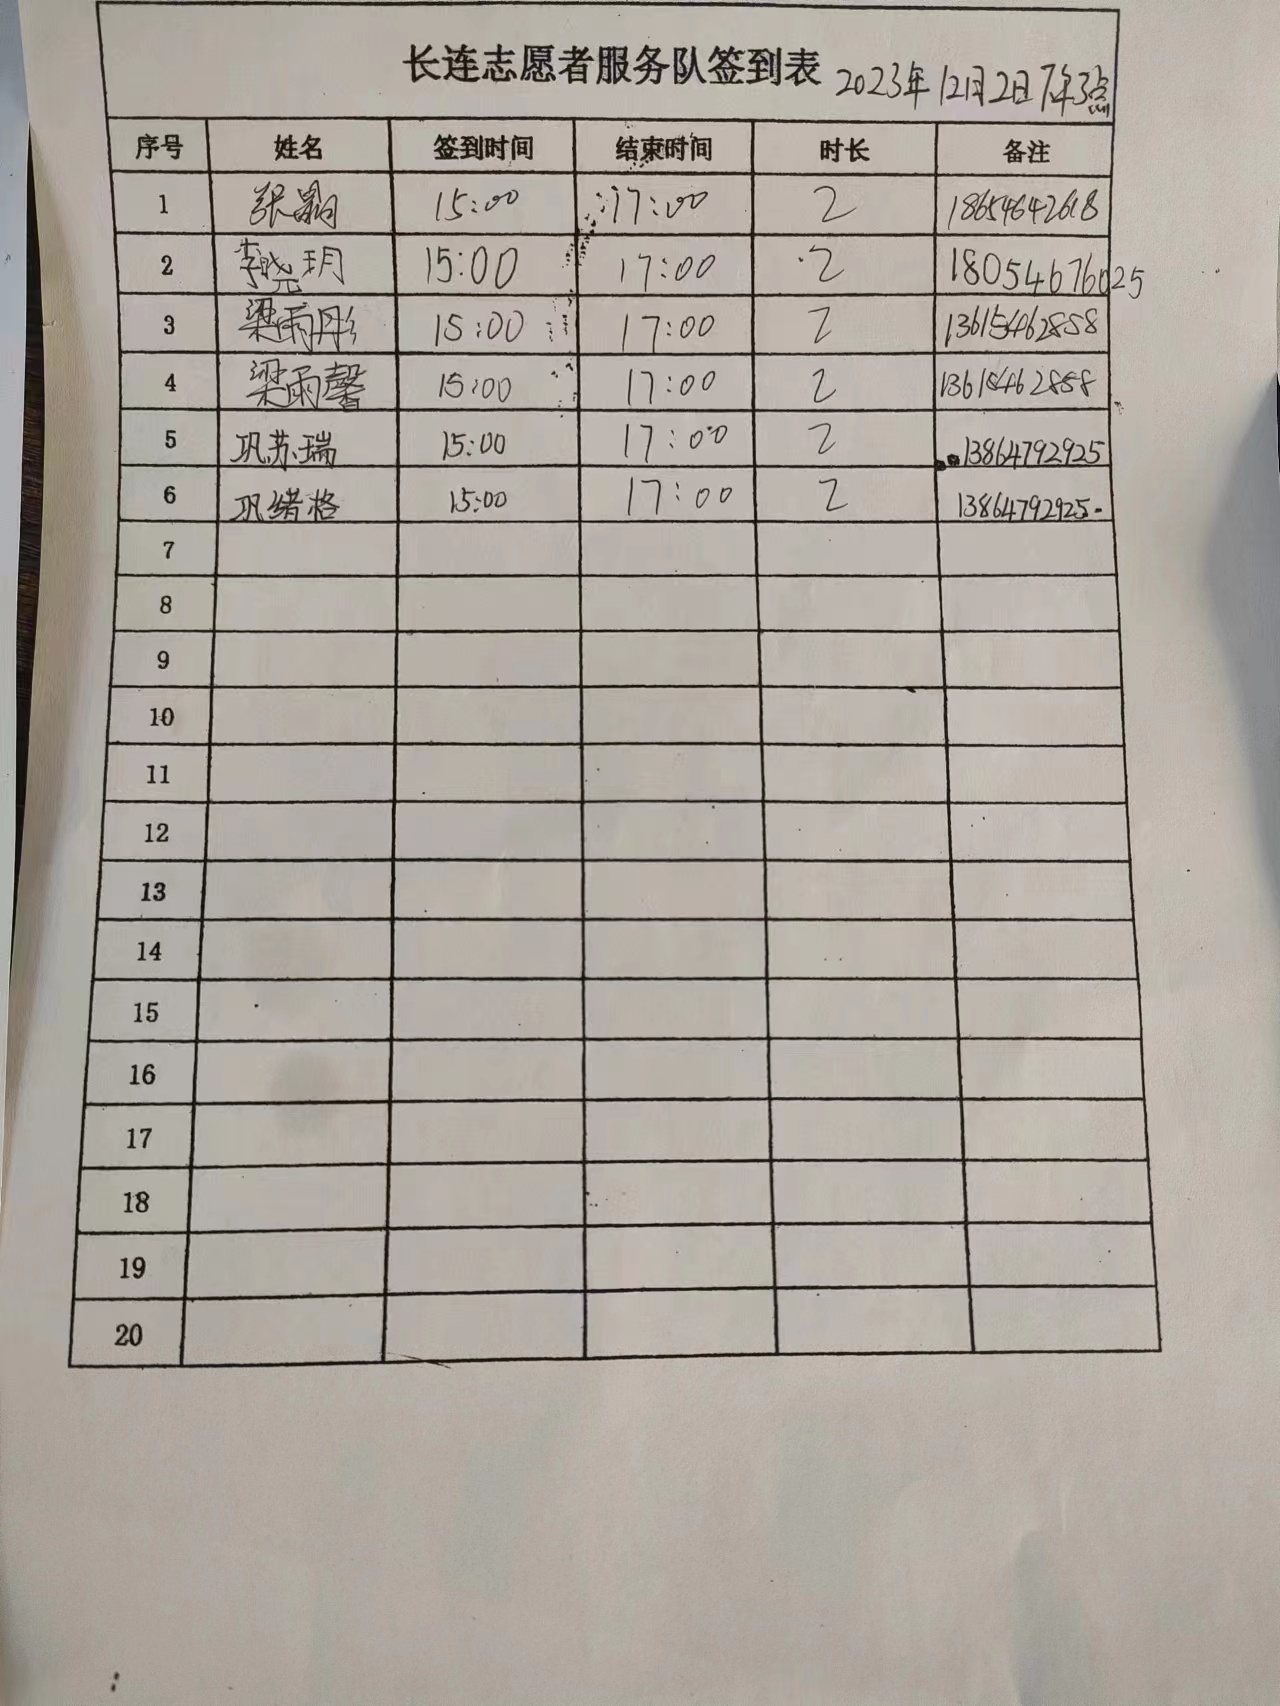 长连志愿者服务队签到表 2023年12月2日下午3点
序号 姓名 签到时间 结束时间 时长 备注
1 张 15:00 17:00 2 18654642618
2 李晓玥 15:00 17:00 2 18054676025
3 梁雨彤 15:00 17:00 2 13615462858
4 梁雨馨 15:00 17:00 2 13615462858
5 巩苏瑞 15:00 17:00 2 13864792925
6 巩绪格 15:00 17:00 2 13864792925
7
8
9
10
11
12
13
14
15
16
17
18
19
20